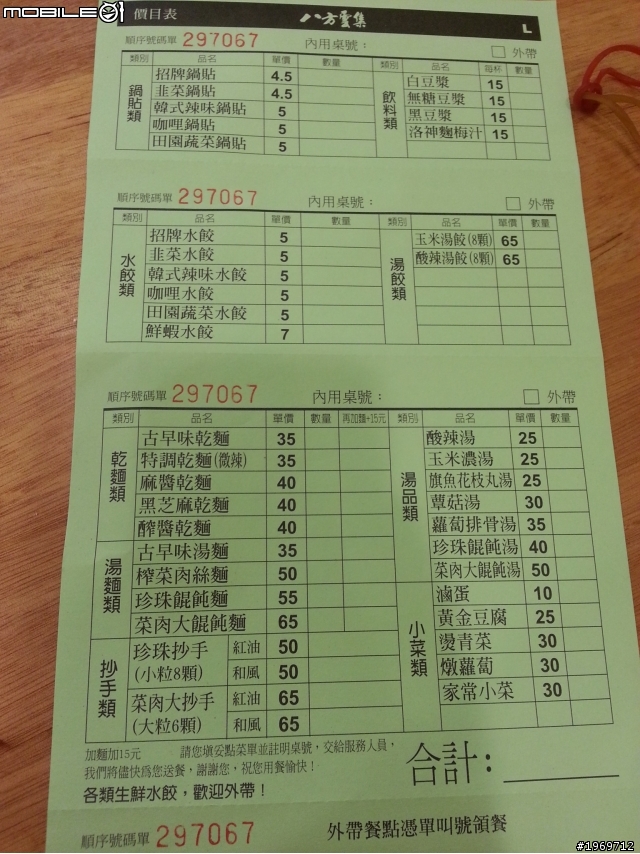 MOBILE01
價目表
八方雲集
L
順序號碼單 297067 內用桌號： 外帶
類別 品名 單價 數量 類別 品名 每杯 數量
鍋貼類
招牌鍋貼 4.5
韭菜鍋貼 4.5
韓式辣味鍋貼 5
咖哩鍋貼 5
田園蔬菜鍋貼 5
飲料類
白豆漿 15
無糖豆漿 15
黑豆漿 15
洛神麴梅汁 15
順序號碼單 297067 內用桌號： 外帶
類別 品名 單價 數量 類別 品名 單價 數量
水餃類
招牌水餃 5
韭菜水餃 5
韓式辣味水餃 5
咖哩水餃 5
田園蔬菜水餃 5
鮮蝦水餃 7
湯餃類
玉米湯餃(8顆) 65
酸辣湯餃(8顆) 65
順序號碼單 297067 內用桌號： 外帶
類別 品名 單價 數量 再加麵+15元 類別 品名 單價 數量
乾麵類
古早味乾麵 35
特調乾麵(微辣) 35
麻醬乾麵 40
黑芝麻乾麵 40
醡醬乾麵 40
湯麵類
古早味湯麵 35
榨菜肉絲麵 50
珍珠餛飩麵 55
菜肉大餛飩麵 65
抄手類
珍珠抄手 紅油 50
(小粒8顆) 和風 50
菜肉大抄手 紅油 65
(大粒6顆) 和風 65
湯品類
酸辣湯 25
玉米濃湯 25
旗魚花枝丸湯 25
蕈菇湯 30
蘿蔔排骨湯 35
珍珠餛飩湯 40
菜肉大餛飩湯 50
小菜類
滷蛋 10
黃金豆腐 25
燙青菜 30
燉蘿蔔 30
家常小菜 30
加麵加15元 請您填妥點菜單並註明桌號，交給服務人員，
我們將儘快為您送餐，謝謝您，祝您用餐愉快！
各類生鮮水餃，歡迎外帶！
合計：
順序號碼單 297067 外帶餐點憑單叫號領餐
#1969712